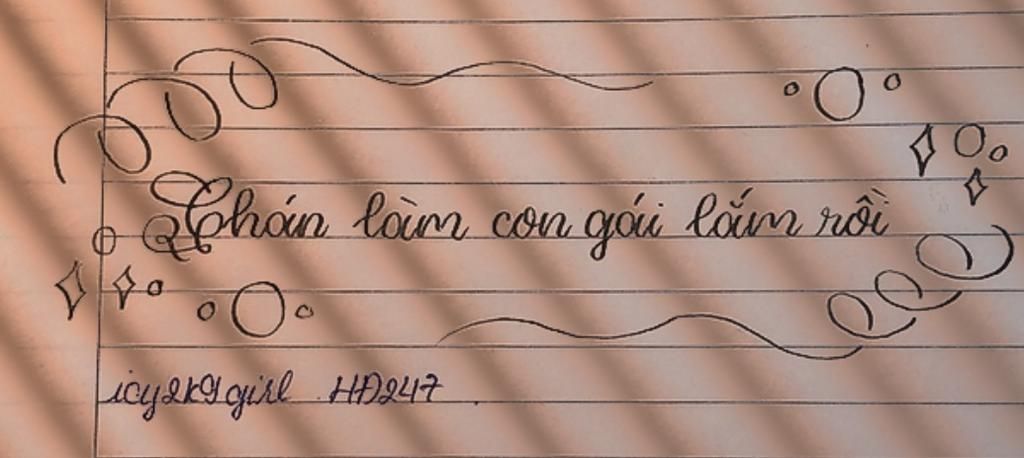 Chán làm con gái lắm rồi
icy2k9girl HĐ247